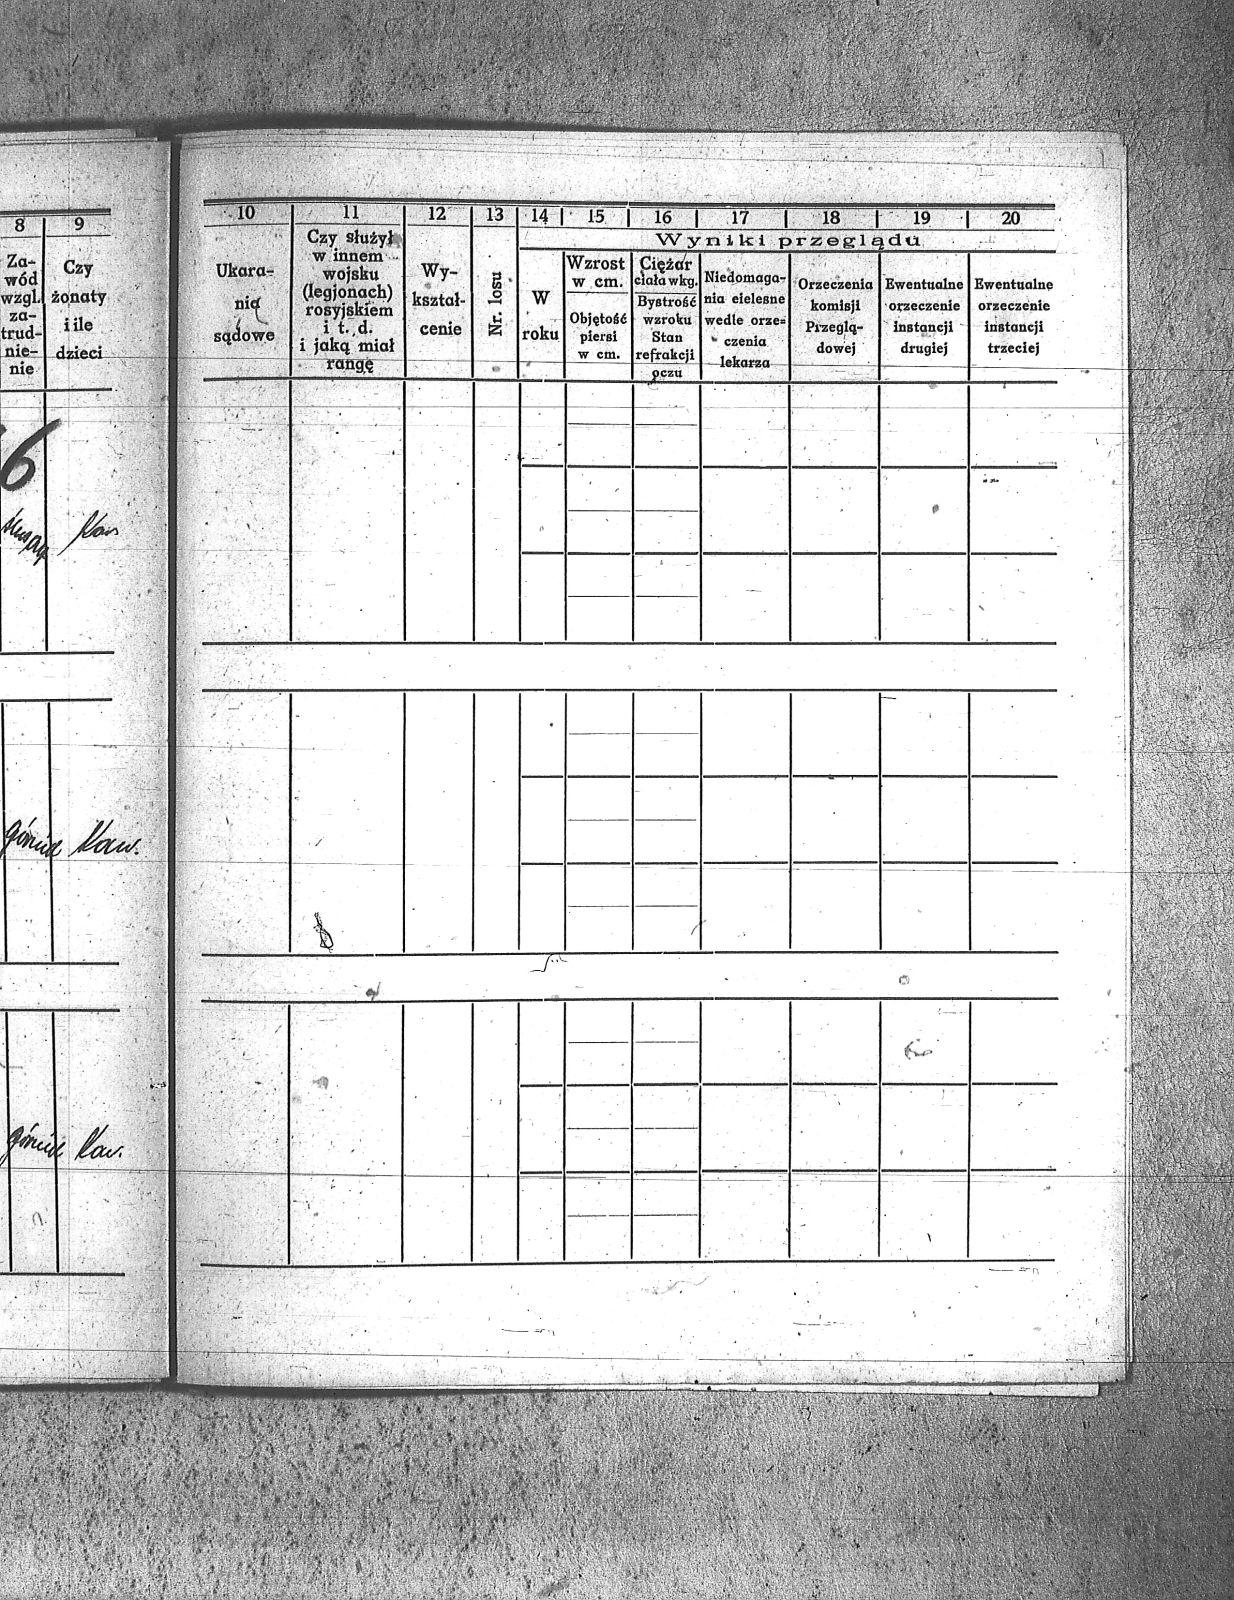 8 9
Za-
wód
wzgl.
za-
trud-
nie-
nie
Czy
żonaty
i ile
dzieci
6
Kaw
górnik Kaw.
górnik Kaw.
10 11 12 13 14 15 16 17 18 19 20
Wyniki przeglądu
Ukara-
nia
sądowe
Czy służył
w innem
wojsku
(legjonach)
rosyjskiem
i t. d.
i jaką miał
rangę
Wy-
kształ-
cenie
Nr. losu
W
roku
Wzrost
w cm.
Objętość
piersi
w cm.
Ciężar
ciała w kg.
Bystrość
wzroku
Stan
refrakcji
oczu
Niedomaga-
nia cielesne
wedle orze-
czenia
lekarza
Orzeczenia
komisji
Przeglą-
dowej
Ewentualne
orzeczenie
instancji
drugiej
Ewentualne
orzeczenie
instancji
trzeciej